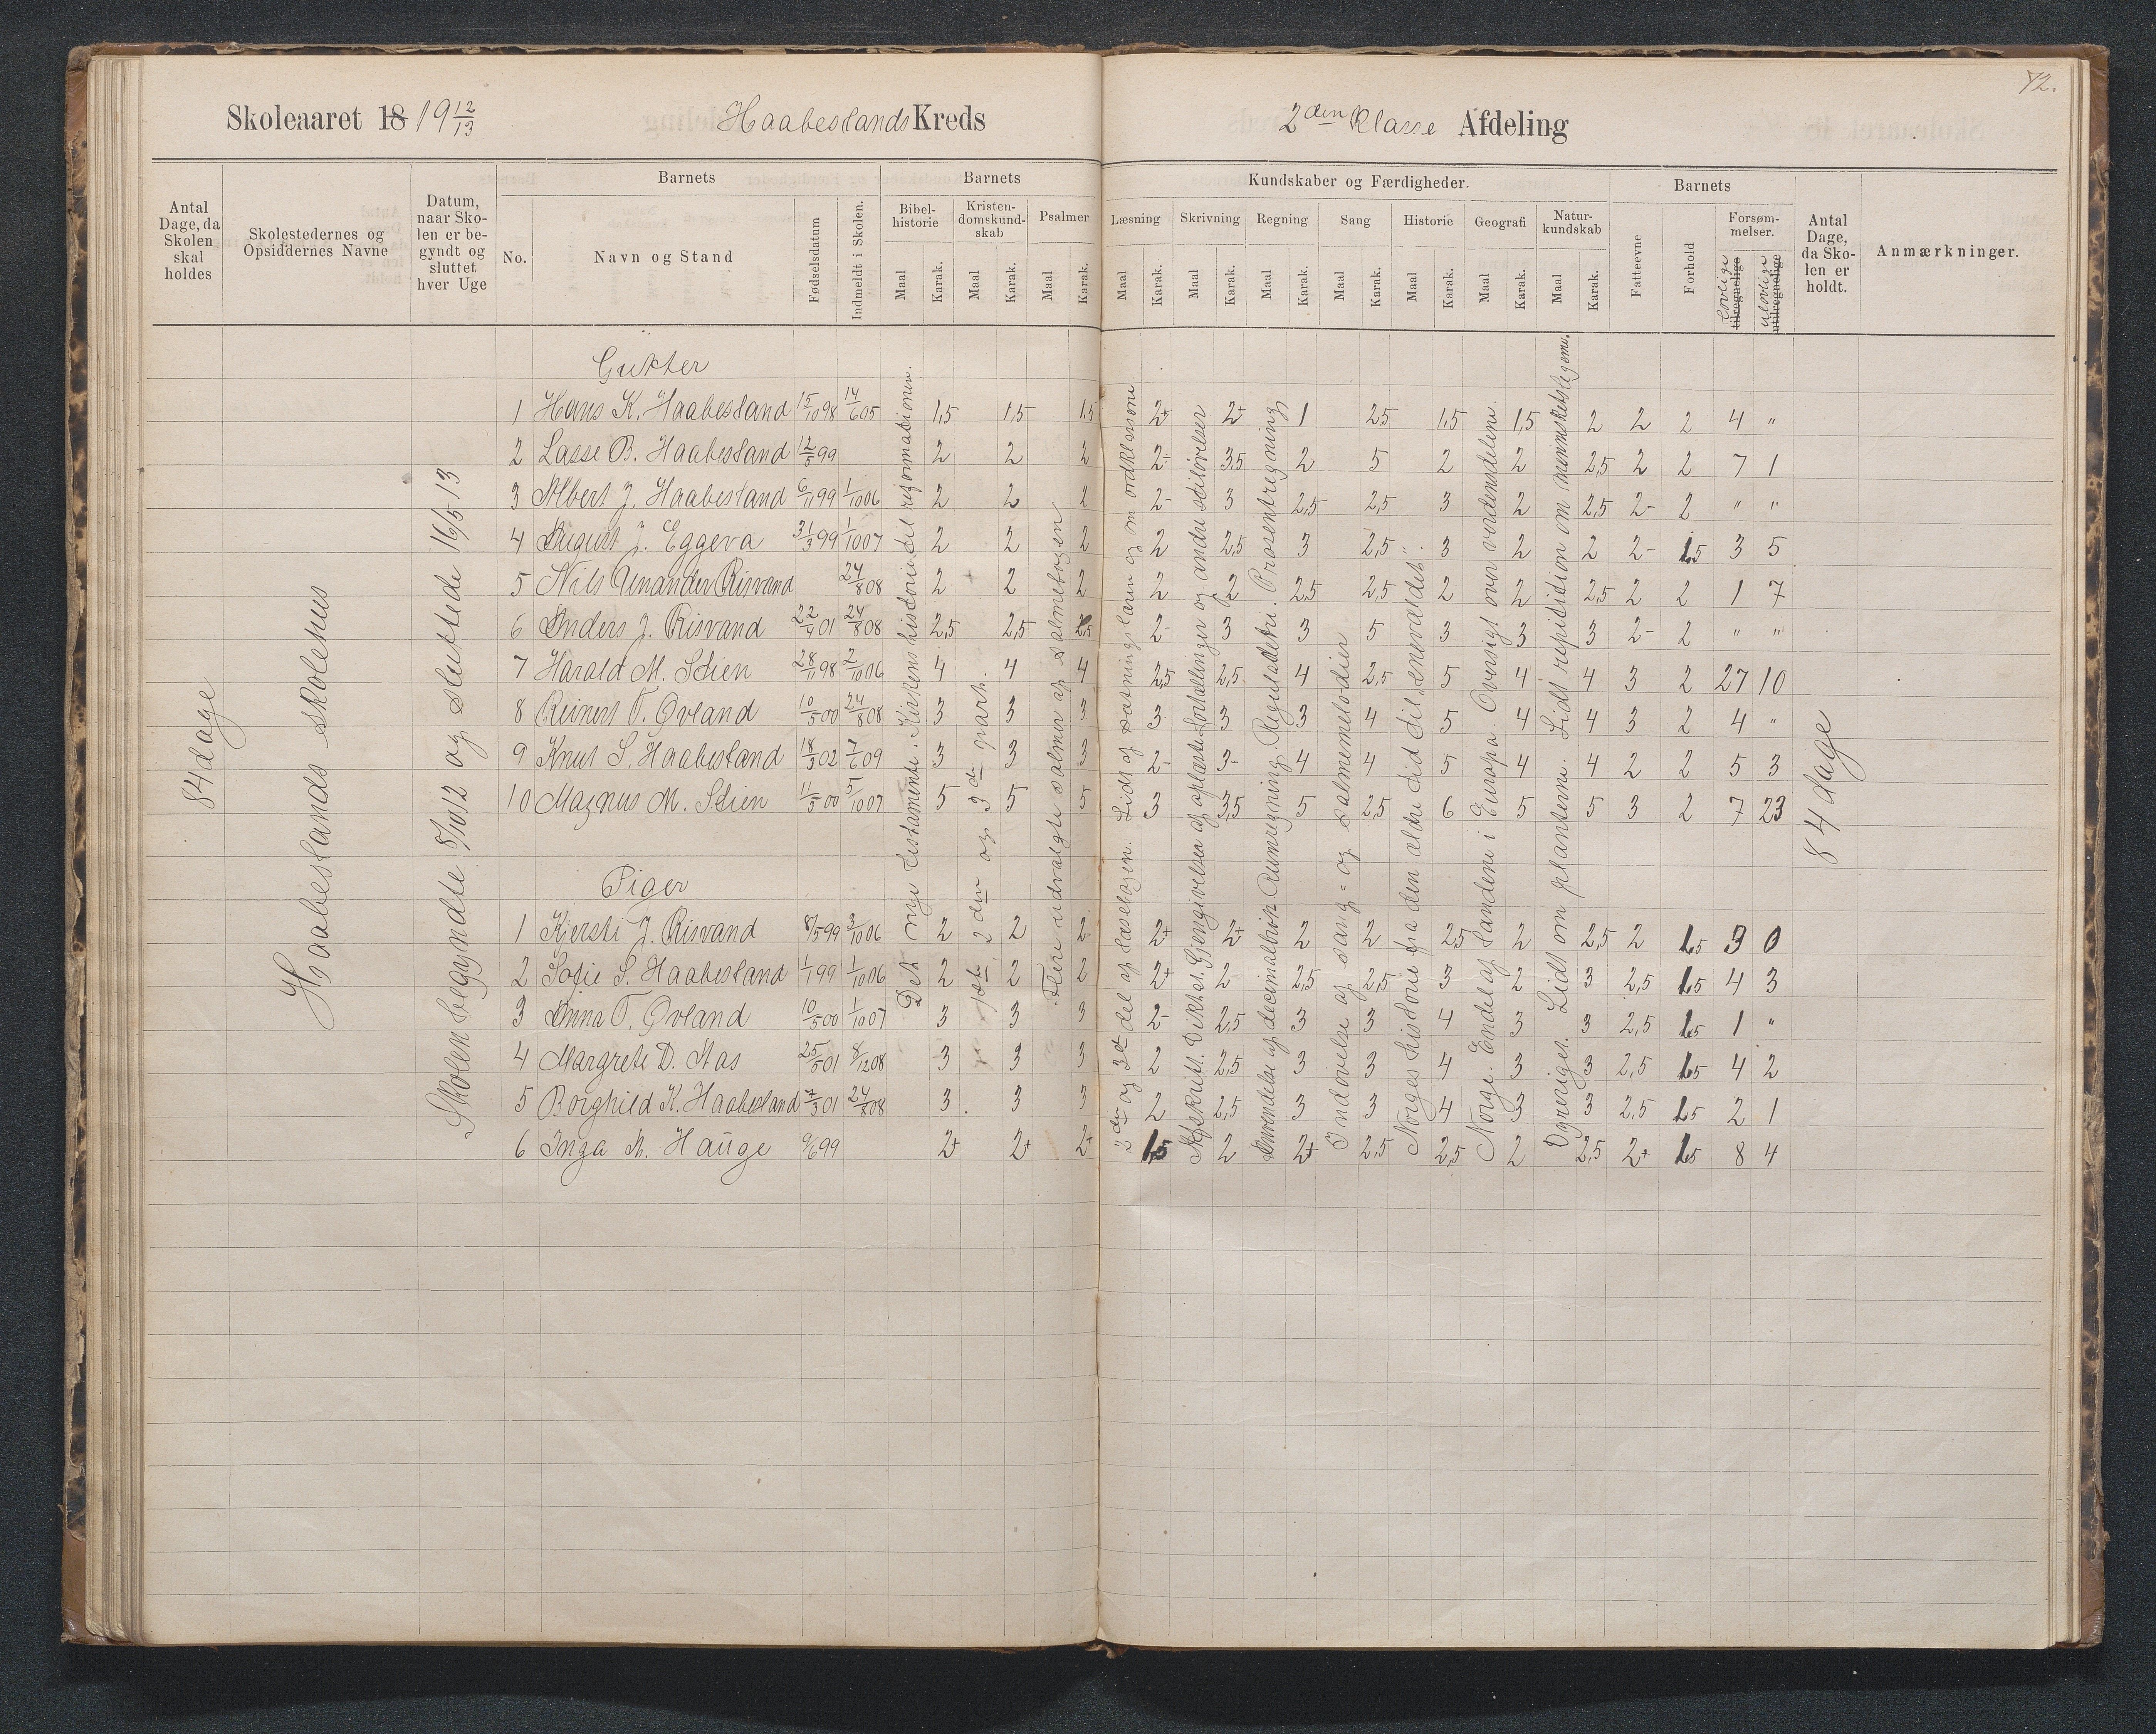 72.
Skoleaaret 18 19 12/13 Haabestands Kreds 2den Klasse Afdeling
Antal Dage, da Skolen skal holdes
Skolestedernes og Opsiddernes Navne
Datum, naar Skolen er begyndt og sluttet hver Uge
Barnets
No. Navn og Stand Fødselsdatum Indmeldt i Skolen.
Barnets Kundskaber og Færdigheder.
Bibelhistorie Kristendomskundskab Psalmer Læsning Skrivning Regning Sang Historie Geografi Naturkundskab
Maal Karak. Maal Karak. Maal Karak. Maal Karak. Maal Karak. Maal Karak. Maal Karak. Maal Karak. Maal Karak. Maal Karak.
Barnets
Fatteevne Forhold Forsømmelser. lovlige tilregnelige ulovlige utilregnelige
Antal Dage, da Skolen er holdt.
Anmærkninger.
84 dage
Haabestands skolehus
Skolen begyndte 8/10 12 og sluttede 16/5 13
Det nye Testamente. Kirkens historie til reformationen.
1ste 2den og 3de part.
Flere udvalgte salmer af salmebogen
2den og 3de del af læsebogen. Lidt af sætningslæren og om ordklassene
Afskrift. Diktat. Gjengivelse af oplæste fortællinger og andre stiløvelser
Anvendelse af decimalbrøk Rumregning. Reguladetri. Prosentregning
Indøvelse af sang- og salmemelodier
Norges historie fra den ældre tid til "enevældet".
Norge. Endel af landene i Europa. Oversigt over verdensdelene.
Dyreriget. Lidt om planterne. Lidt repitition om menneskelegeme.
84 dage
Gutter
1 Hans K. Haabestand 15/10 98 14/6 05 1,5 1,5 1,5 2+ 2+ 1 2,5 1,5 1,5 2 2 2 4 "
2 Lasse B. Haabestand 12/5 99 2 2 2 2- 3,5 2 5 2 2 2,5 2 2 7 1
3 Albert J. Haabestand 6/11 99 1/10 06 2 2 2 2- 3 2,5 2,5 3 2 2,5 2- 2 " "
4 August J. Eggeva 31/3 99 1/10 07 2 2 2 2 2,5 3 2,5 3 2 2 2- 1,5 3 5
5 Nils Unander Risvand 24/8 08 2 2 2 2 2 2,5 2,5 2 2 2,5 2 2 1 7
6 Anders J. Risvand 22/4 01 24/8 08 2,5 2,5 2,5 2- 3 3 5 3 3 3 2- 2 " "
7 Harald M. Stien 28/11 98 2/10 06 4 4 4 2,5 2,5 4 2,5 5 4 4 3 2 27 10
8 Reinert T. Øvland 10/5 00 24/8 08 3 3 3 3 3 3 4 5 4 4 3 2 4 "
9 Knut S. Haabestand 18/3 02 7/6 09 3 3 3 2- 3- 4 4 5 4 4 2 2 5 3
10 Magnus M. Stien 11/5 00 5/10 07 5 5 5 3 3,5 5 2,5 6 5 5 3 2 7 23
Piger
1 Kjersti J. Risvand 8/5 99 3/10 06 2 2 2 2+ 2+ 2 2 2,5 2 2,5 2 1,5 3 0
2 Sofie S. Haabestand 1/1 99 1/10 06 2 2 2 2+ 2 2,5 2,5 3 2 3 2,5 1,5 4 3
3 Anna T. Øvland 10/5 00 1/10 07 3 3 3 2- 2,5 3 3 4 3 3 2,5 1,5 1 "
4 Margrete D. Aas 25/5 01 8/12 08 3 3 3 2 2,5 3 3 4 3 3 2,5 1,5 4 2
5 Borghild K. Haabestand 7/3 01 24/8 08 3 3 3 2 2,5 3 3 4 3 3 2,5 1,5 2 1
6 Inga M. Hauge 9/6 99 2+ 2+ 2+ 1,5 2 2+ 2,5 2,5 2 2,5 2+ 1,5 8 4